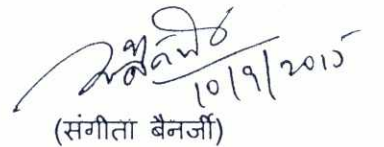 10/9/2015
(संगीता बैनर्जी)